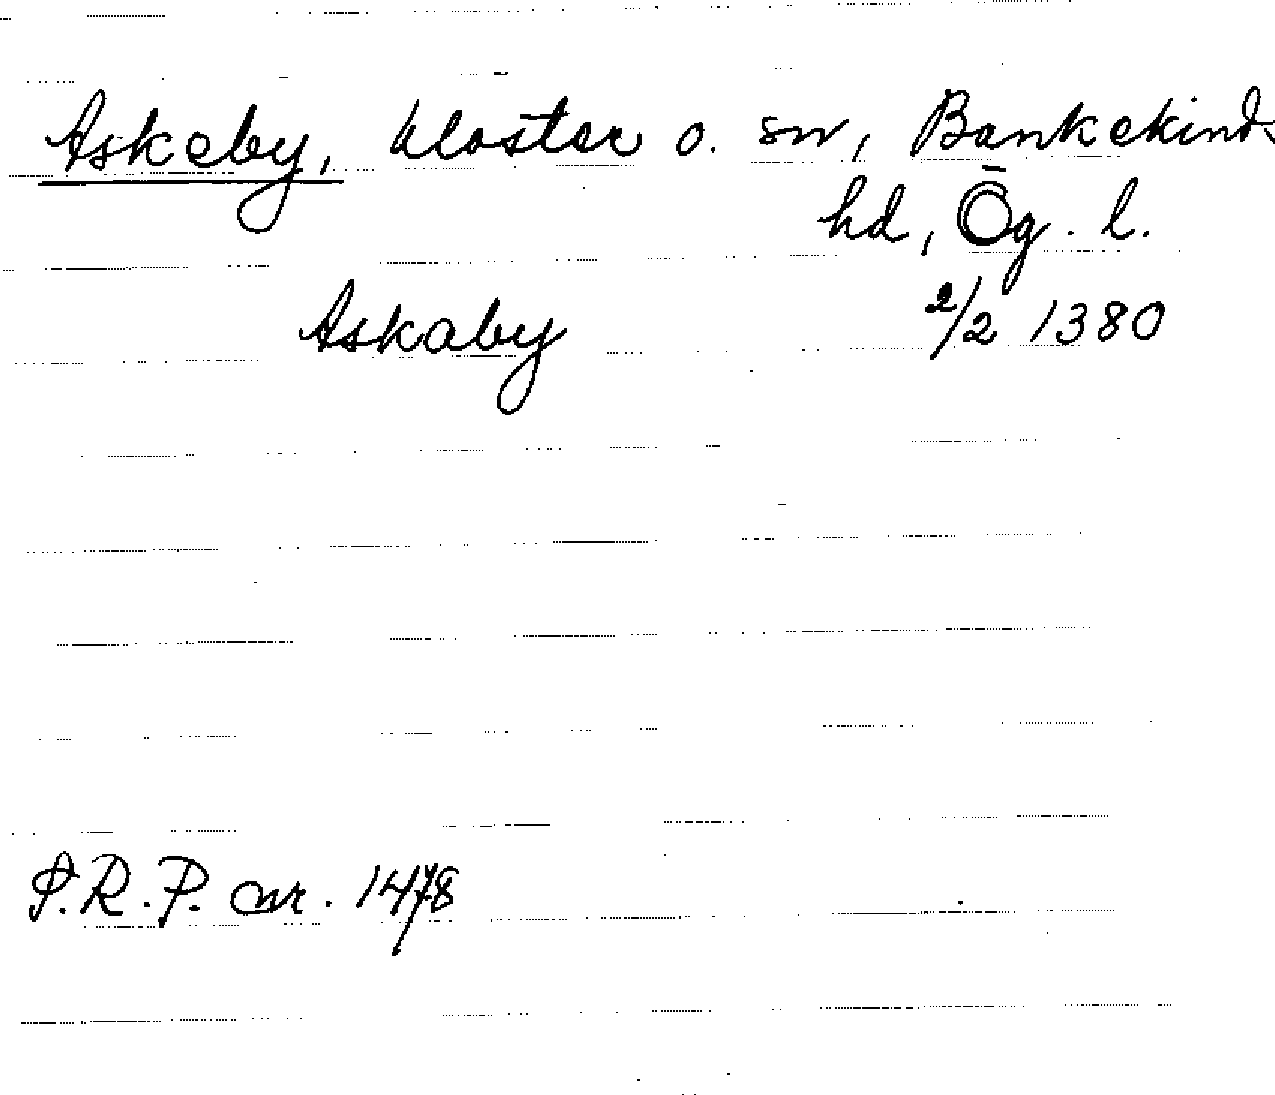 Askeby, kloster o. sn, Bankekinds
hd, Ög. l.
Askaby 2/2 1380
S.R.P. nr. 1478